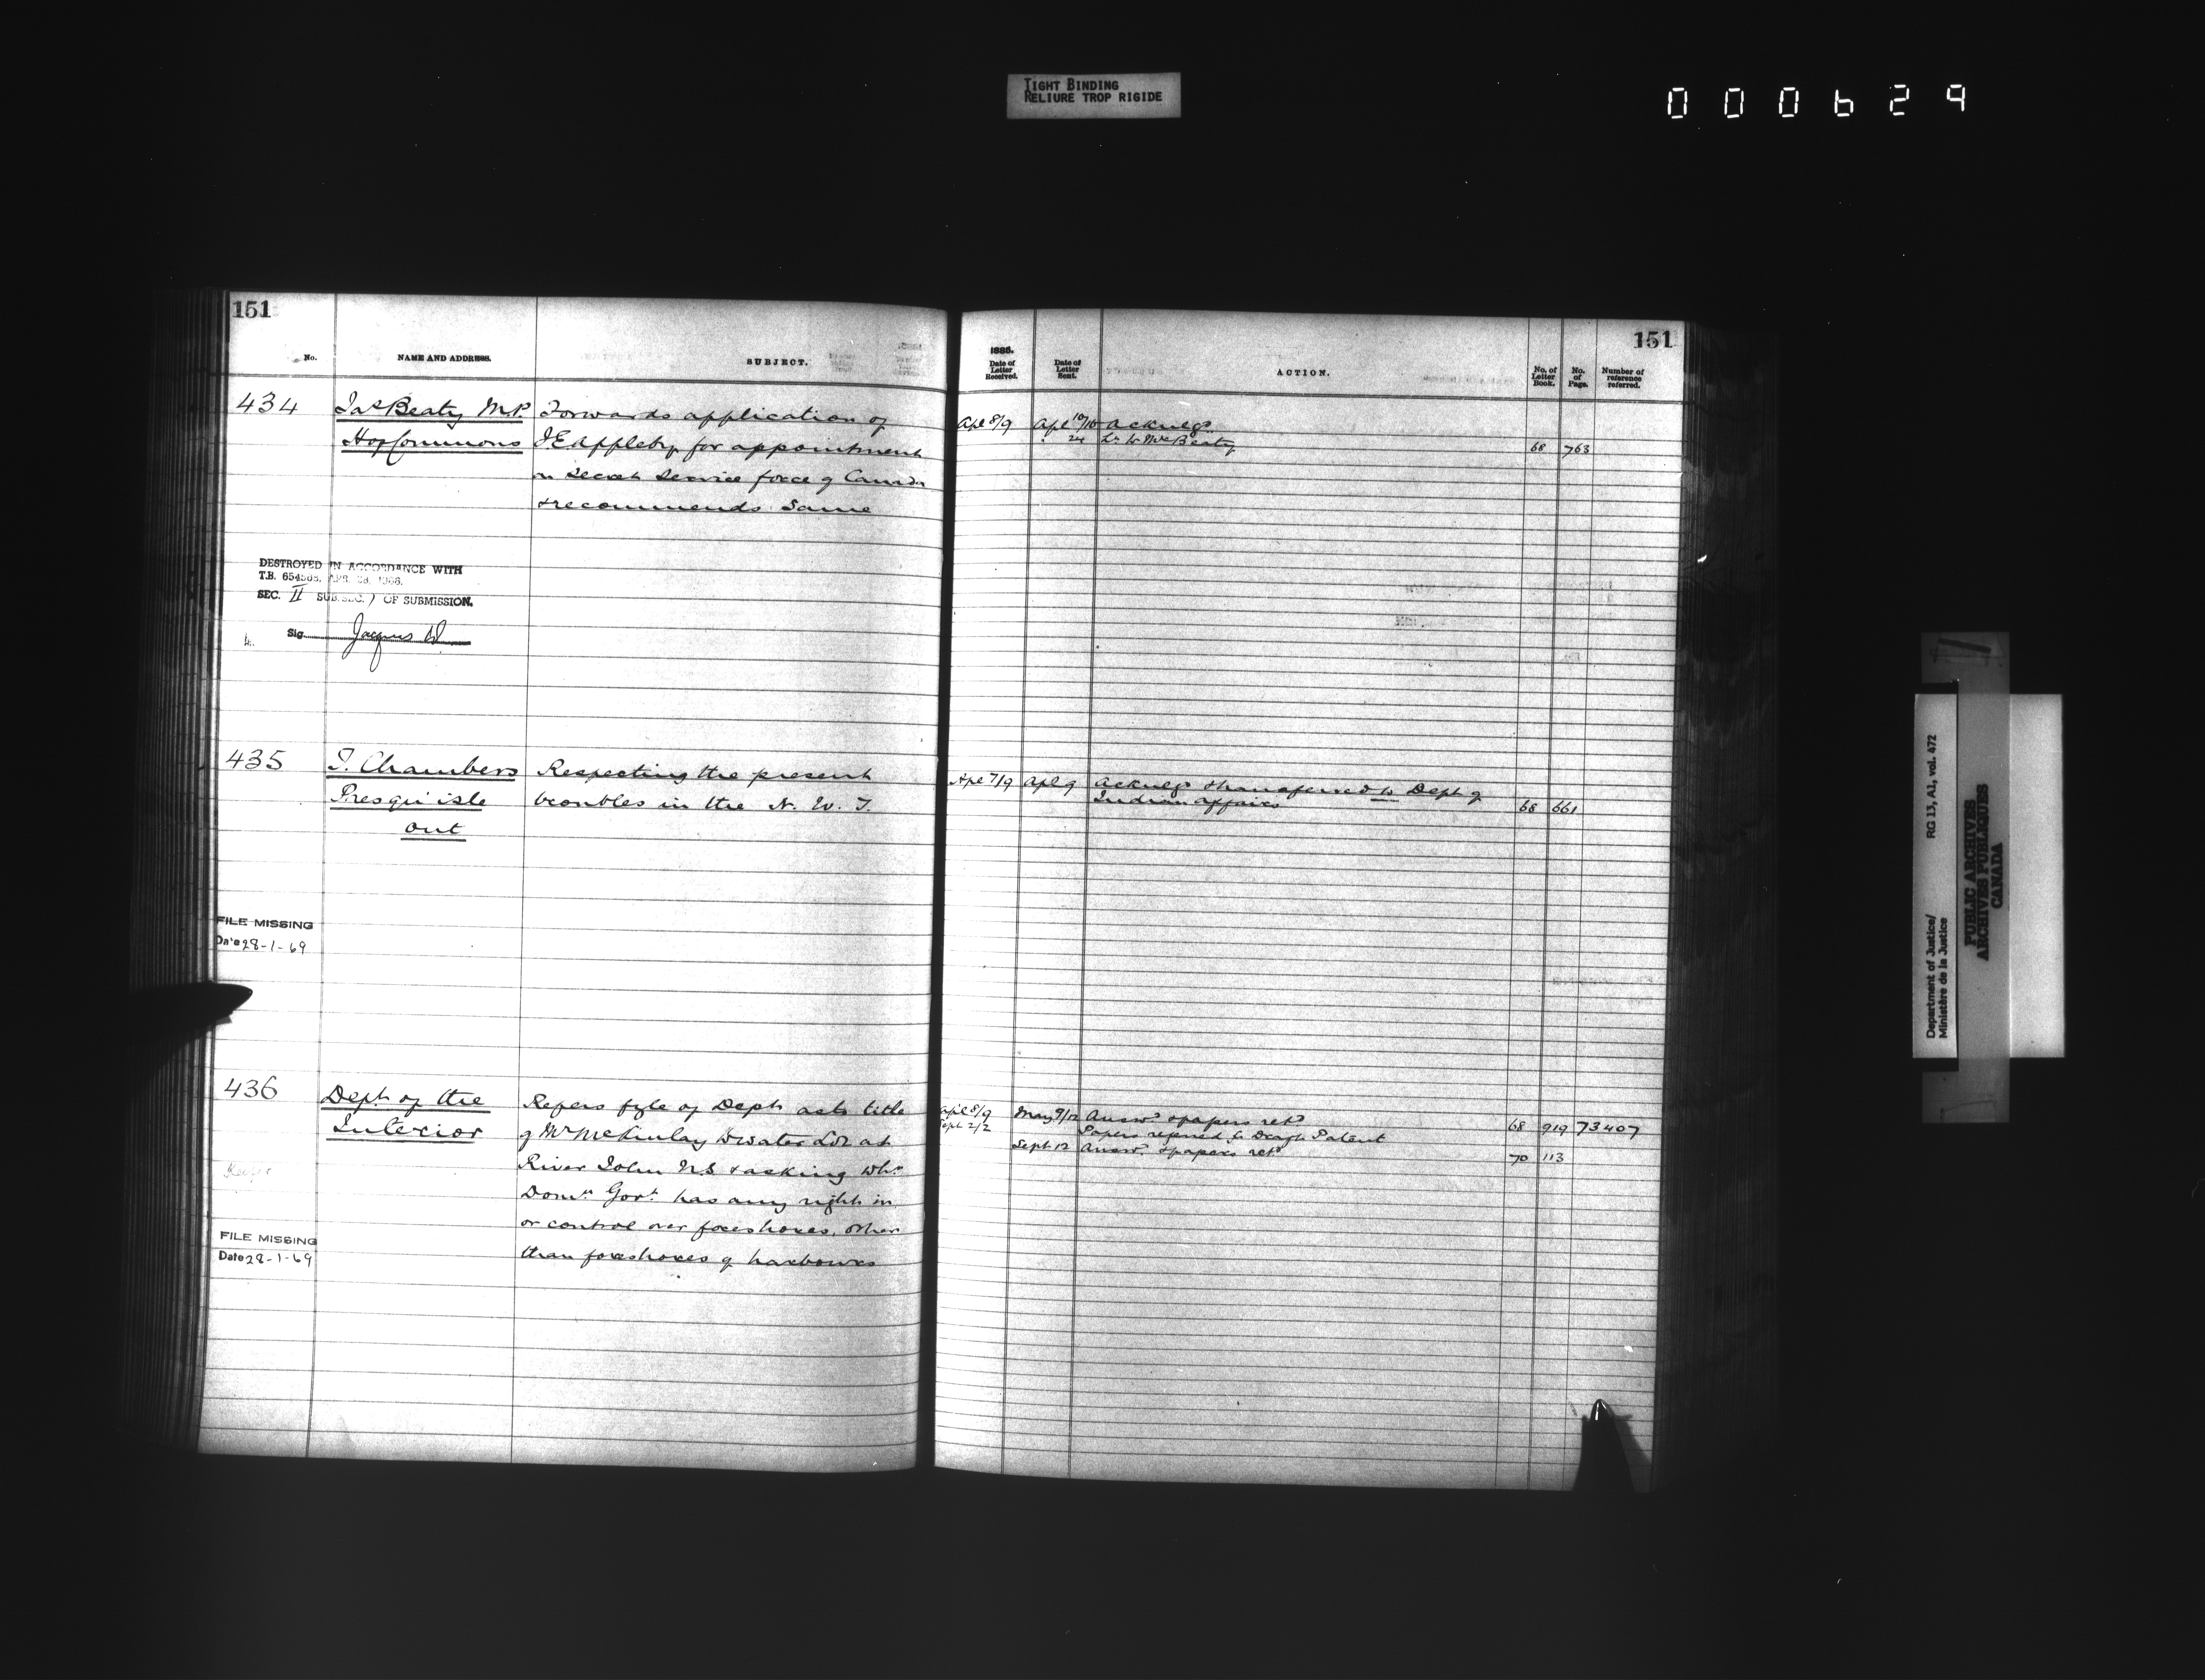 TIGHT BINDING
RELIURE TROP RIGIDE
000629
151
No.
NAME AND ADDRESS.
SUBJECT.
434
Jas Beaty M.P.
Ho of Commons
Forwards application of
J. E. Appleby for appointment
on Secret Service force of Canada
& recommends same
DESTROYED IN ACCORDANCE WITH
T.B. 654565, APR. 28, 1966.
SEC. II SUB.SEC. ) OF SUBMISSION.
Sig. Jacques
435
T. Chambers
Presqu'isle
Ont
Respecting the present
troubles in the N. W. T.
FILE MISSING
Date 28-1-69
436
Dept of the
Interior
Refers fyle of Dept as to title
of Mr McKinlay to water Lot at
River John N.S & asking whr
Domn Govt has any right in
or control over foreshores, other
than foreshores of harbours
FILE MISSING
Date 28-1-69
151
1885.
Date of Letter Received.
Date of Letter Sent.
ACTION.
No. of Letter Book.
No. of Page.
Number of reference referred.
Apl 8/9 Apl 10/10 Acknlgd
" 24 Lr to Mr Beaty 68 763
Apl 7/9 Apl 9 Acknlgd & transferred to Dept of
Indian Affairs 68 661
Apl 8/9 May 9/12 Answd & papers retd 68 919 73407
Sept 2/2 Papers referred to Draft Patent
Sept 12 Answd & papers retd 70 113
Department of Justice/
Ministère de la Justice
RG 13, A1, vol. 472
PUBLIC ARCHIVES
ARCHIVES PUBLIQUES
CANADA